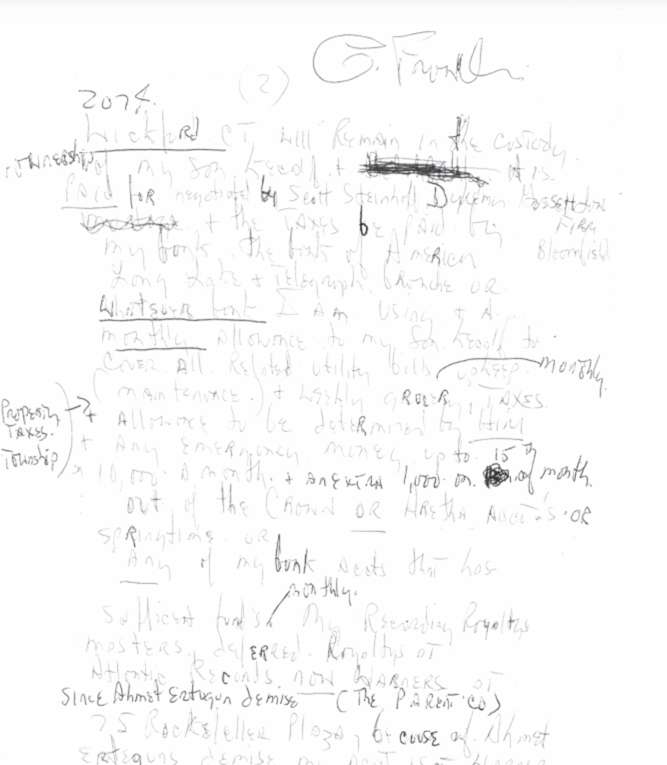 (2)
2074.
Wickford CT will Remain in the custody
ownership
of my Son Kecalf + It is
PAID for negotiated by Scott Steinhoff, Dykema Gossett
FIRM
Bloomfield
+ the TAXES be PAID by
my bank, the bank of American
Long Lake + Telegraph, branche OR
Whatsoever bank I Am using + A
monthly Allowance to my Son Kecalf to
Cover All Related utility bills upkeep. monthly.
(maintenance.) + weekly grocery, TAXES.
Property TAXES. Township
+ Allowance to be determined by Him
+ Any Emergency money up to 15
10,000 A month. + AN EXTRA 1,000 on of month.
out of the Crown OR Aretha Accts OR
springtime OR
Any of my bank Accts that has
monthly.
Sufficient funds My Recording Royaltys
masters, deferred Royaltys at
Atlantic Records. now WARNERS at
SINCE Ahmet Ertugun demise (The PARENT CO)
75 Rockefeller Plaza, because of Ahmet
Erteguns demise my